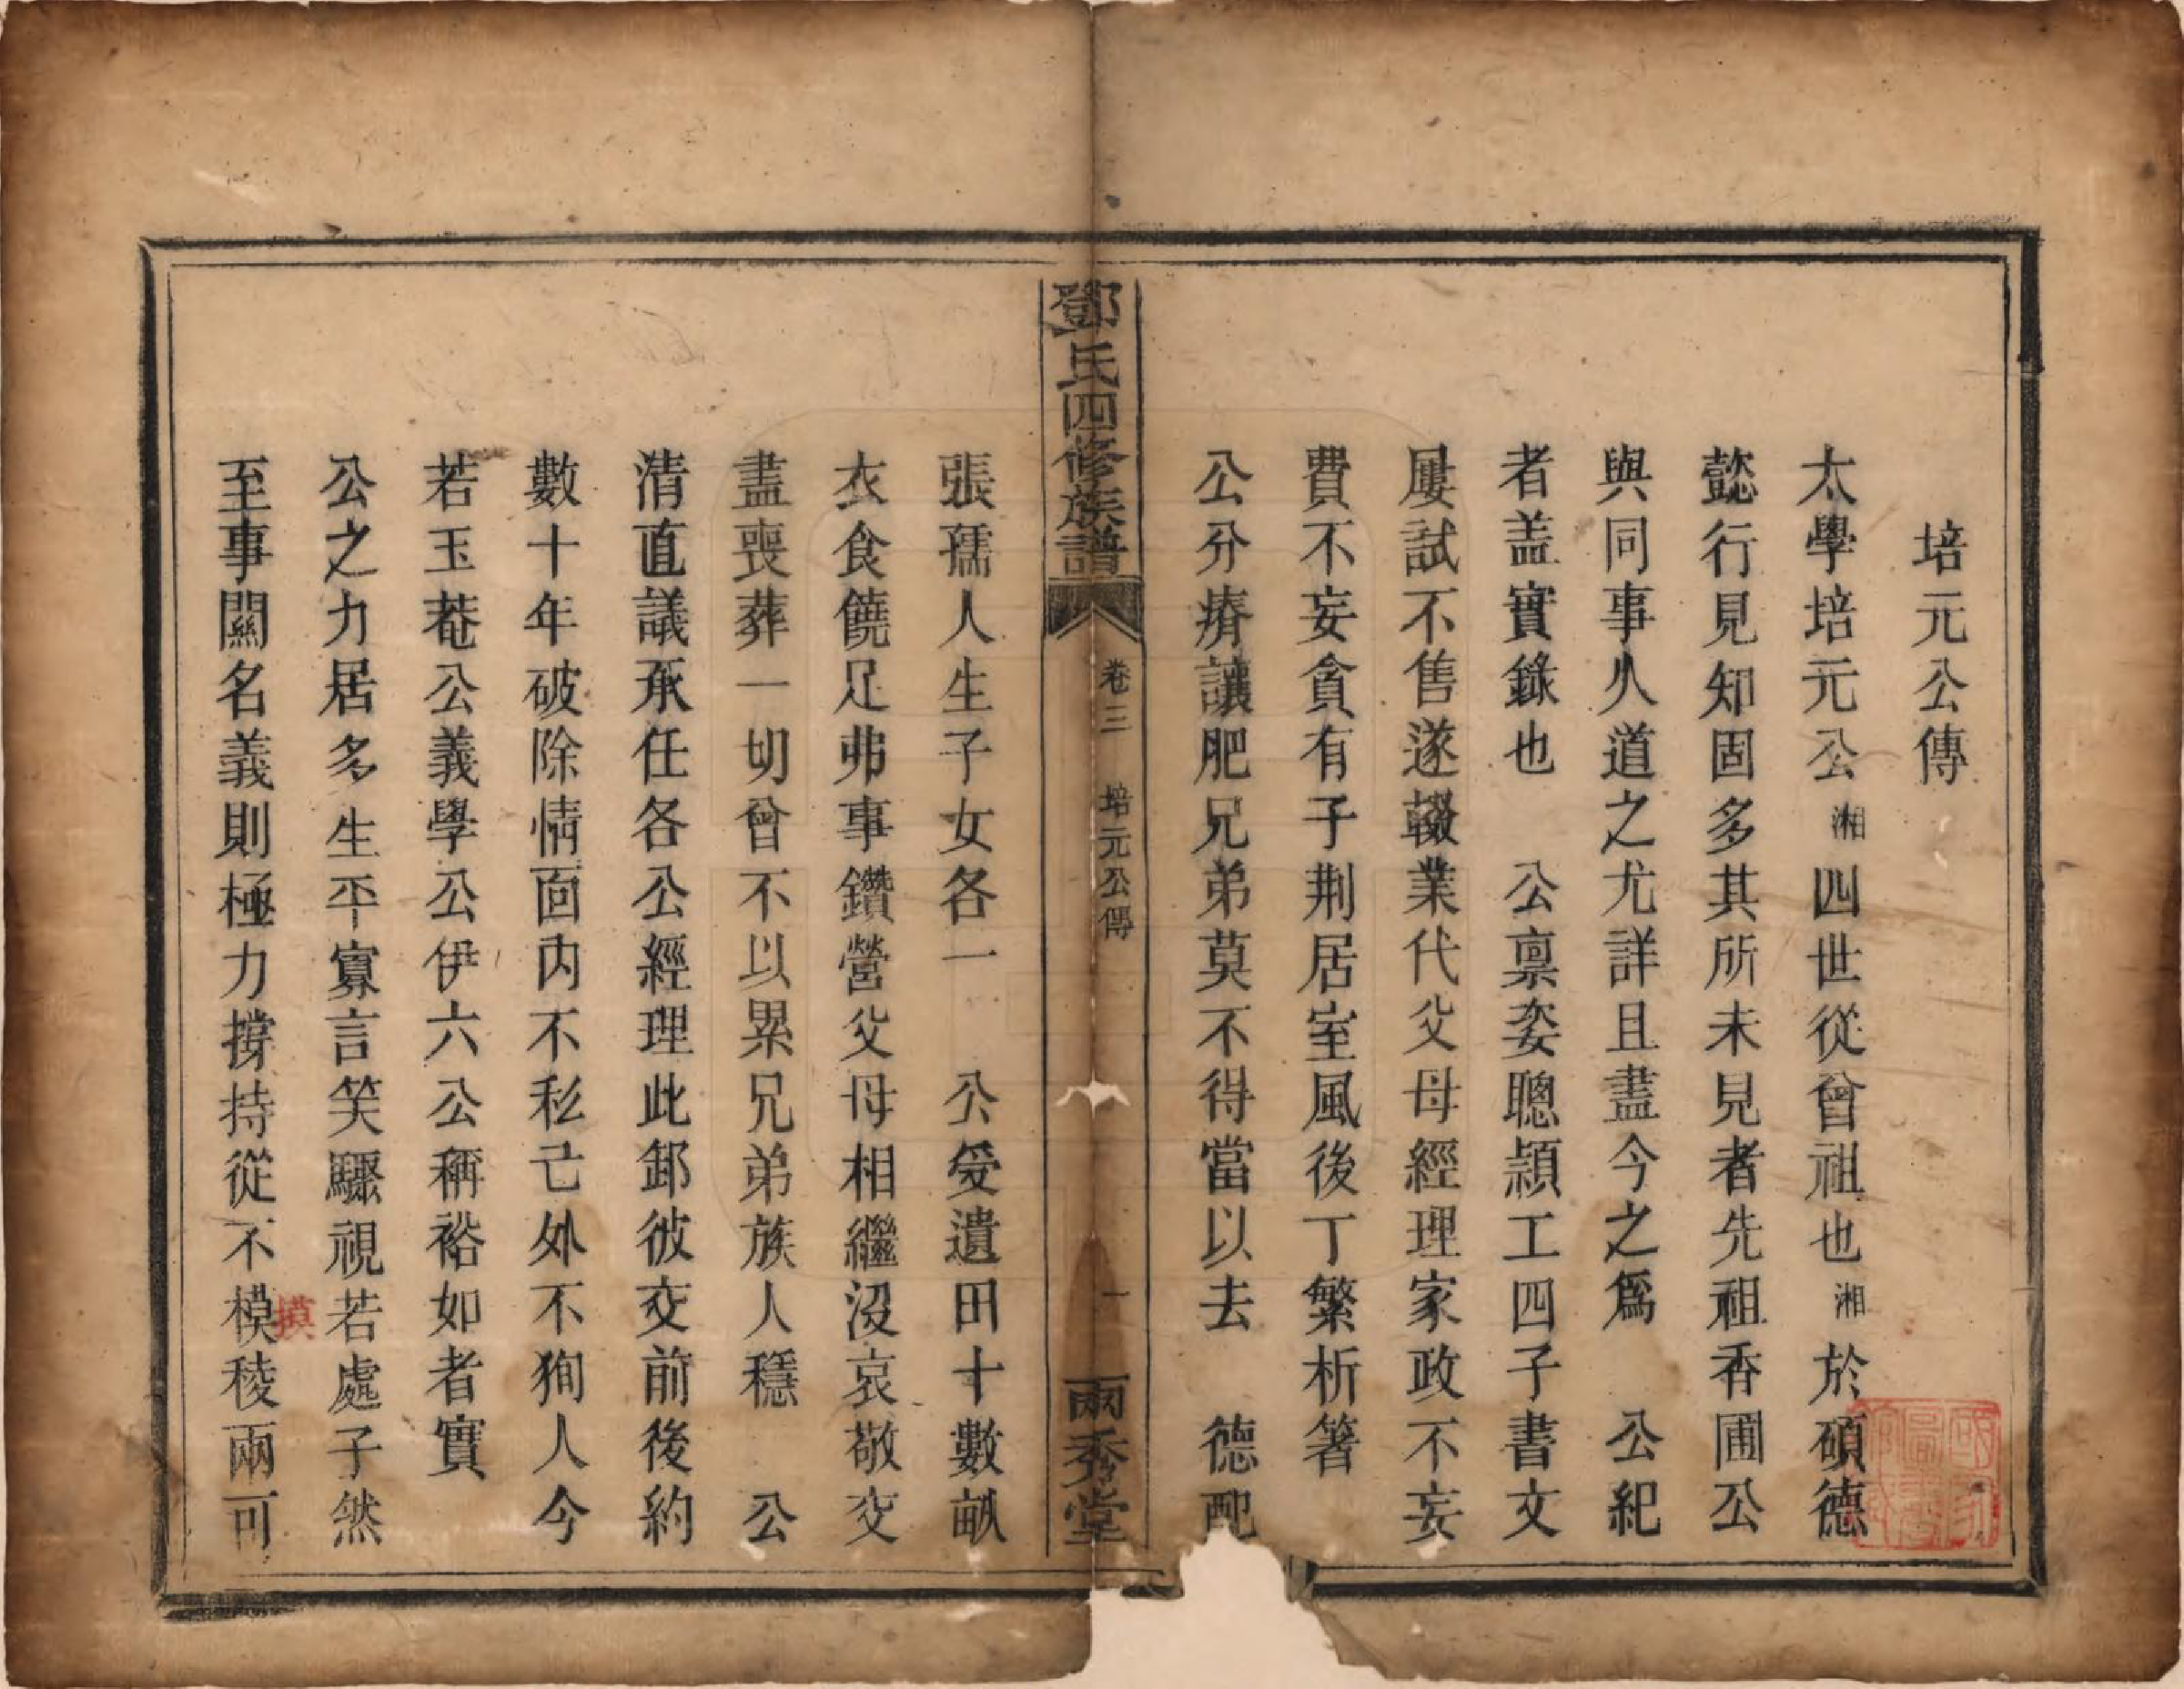 培元公傳
太學培元公湘四世從曾祖也湘於碩德
懿行見知固多其所未見者先祖香圃公
與同事久道之尤詳且盡今之爲 公紀
者盖實錄也 公禀姿聰頴工四子書文
屢試不售遂輟業代父母經理家政不妄
費不妄貪有子荆居室風後丁繁析箸
公分瘠讓肥兄弟莫不得當以去 德配
鄧氏四修族譜 卷三 培元公傳 一 兩秀堂
張孺人生子女各一 公受遺田十數畝
衣食饒足弗事鑽營父母相繼沒哀敬交
盡喪葬一切曾不以累兄弟族人穩 公
清直議承任各公經理此卸彼交前後約
數十年破除情面內不私己外不狥人今
若玉菴公義學公伊六公稱裕如者實
公之力居多生平寡言笑驟視若處子然
至事關名義則極力撐持從不模稜兩可
摸